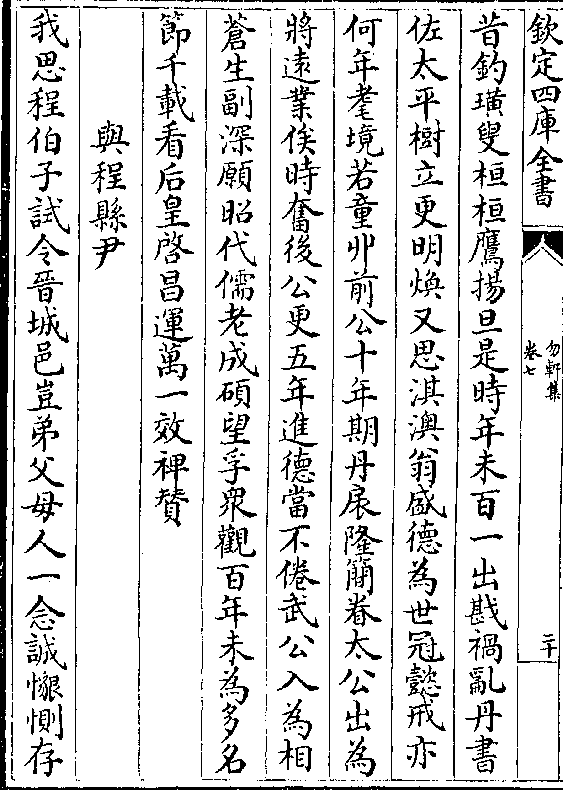 欽定四庫全書
勿軒集
卷七
二十
昔釣璜叟桓桓鷹揚旦是時年未百一出戡禍亂丹書
佐太平樹立更明煥又思淇澳翁盛德為世冠懿戒亦
何年耄境若童丱前公十年期丹扆隆簡眷太公出為
將遠業俟時奮後公更五年進德當不倦武公入為相
蒼生副深願昭代儒老成碩望孚衆觀百年未為多名
節千載看后皇啓昌運萬一效裨贊
與程縣尹
我思程伯子試令晉城邑豈弟父母人一念誠懇惻存